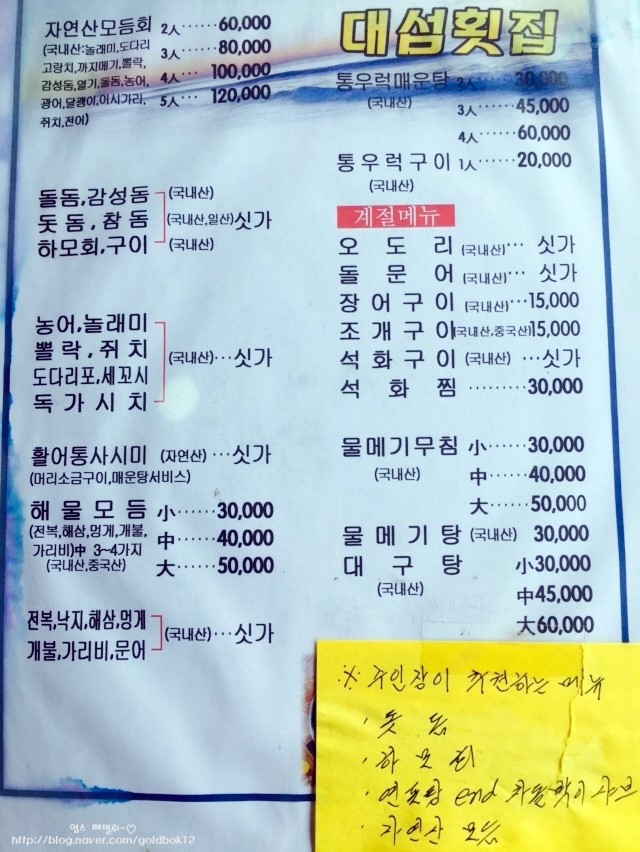 자연산모듬회 2人……60,000
(국내산:놀래미,도다리 3人……80,000
고랑치,까지메기,뽈락,
감성돔,열기,돌돔,농어, 4人… 100,000
광어,달갱이,이시가리, 5人… 120,000
쥐치,전어)
돌돔,감성돔 (국내산)
돗돔,참돔 (국내산,일산) 싯가
하모회,구이 (국내산)
농어,놀래미
뽈락,쥐치 (국내산)…싯가
도다리포,세꼬시
독가시치
활어통사시미 (자연산)…싯가
(머리소금구이,매운탕서비스)
해물모듬 小……30,000
(전복,해삼,멍게,개불, 中……40,000
가리비)中 3~4가지
(국내산,중국산) 大……50,000
전복,낙지,해삼,멍게 (국내산)…싯가
개불,가리비,문어
대섬횟집
통우럭매운탕 2人……30,000
(국내산) 3人……45,000
4人……60,000
통우럭구이 1人……20,000
(국내산)
계절메뉴
오도리 (국내산)… 싯가
돌문어 (국내산)… 싯가
장어구이 (국내산)…15,000
조개구이(국내산,중국산)15,000
석화구이 (국내산) …싯가
석화찜……30,000
물메기무침 小……30,000
(국내산) 中……40,000
大……50,000
물메기탕 (국내산) 30,000
대구탕 小30,000
(국내산) 中45,000
大60,000
※ 주인장이 추천하는 메뉴
· 돗돔
· 하모회
· 연포탕 end 차돌박이 샤브
· 자연산 모듬
http://blog.naver.com/goldbok12